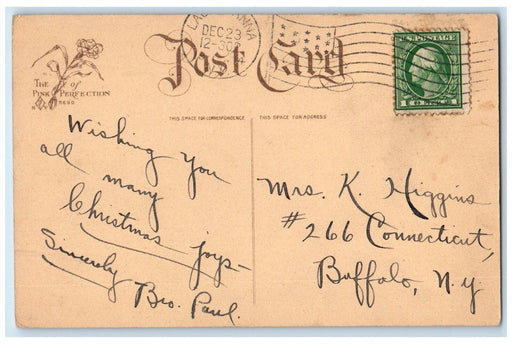 DEC 23
12-30
U.S. POSTAGE
Post Card
THE of
PINK PERFECTION
THIS SPACE FOR CORRESPONDENCE
THIS SPACE FOR ADDRESS
Wishing You
all many
Christmas joys-
Sincerely
Bro. Paul.
Mrs. K. Higgins
#266 Connecticut,
Buffalo, N.Y.